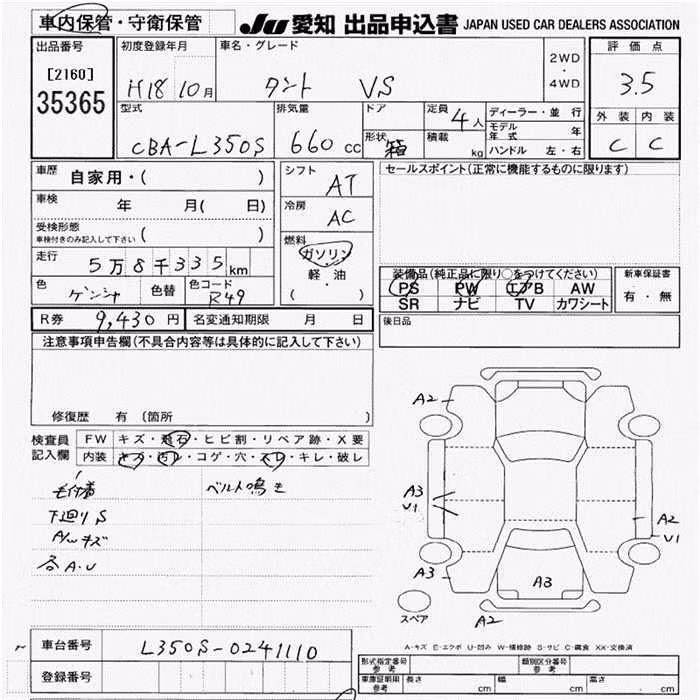 車内保管・守衛保管
JU 愛知 出品申込書 JAPAN USED CAR DEALERS ASSOCIATION
出品番号
[2160]
35365
初度登録年月
H18 10月
車名・グレード
タント VS
2WD
・
4WD
評価点
3.5
外装 内装
C C
型式
CBA-L350S
排気量
660 cc
ドア
形状 箱
定員 4人
積載 kg
ディーラー・並行
モデル年式 年
ハンドル 左・右
車歴
自家用・( )
車検
年 月( 日)
受検形態
車検付きのみ記入して下さい ( )
走行
5万8千335km
色
色替
色コード
R49
シフト
AT
冷房
AC
燃料
ガソリン
軽油
( ・ )
セールスポイント(正常に機能するものに限ります)
装備品(純正品に限り○をつけてください)
PS PW エアB AW
SR ナビ TV カワシート
新車保証書
有・無
R券 9,430円
名変通知期限 月 日
後日品
注意事項申告欄(不具合内容等は具体的に記入して下さい)
修復歴 有 〔箇所 〕
検査員
記入欄
FW キズ・飛石・ヒビ割・リペア跡・X要
内装 キズ・汚レ・コゲ・穴・スレ・キレ・破レ
ベルト鳴き
下廻りS
A/W キズ
各A.U
A2
A3
U1
A3
A3
A2
A2
U1
スペア
A-キズ E-エクボ U-凹み W-補修跡 S-サビ C-腐食 XX-交換済
車台番号
L350S-0241110
登録番号
形式指定番号
参考
類別区分番号
参考
車庫証明用
参考
長さ cm 幅 cm 高さ cm